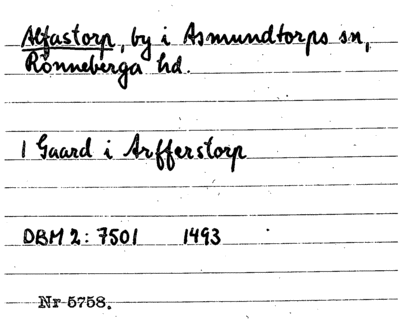 Alfastorp, by i Asmundtorps sn,
Rönneberga hd.
1 Gaard i Arfferstorp
DBM 2: 7501 1493
Nr 5758.